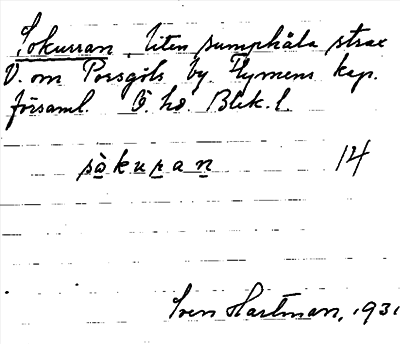 Sokurran, liten sumphåla strax
V. om Porsgöls by Flymens kap.
församl. Ö. hd. Blek. l.
sàkuran 14
Sven Hartman, 1931